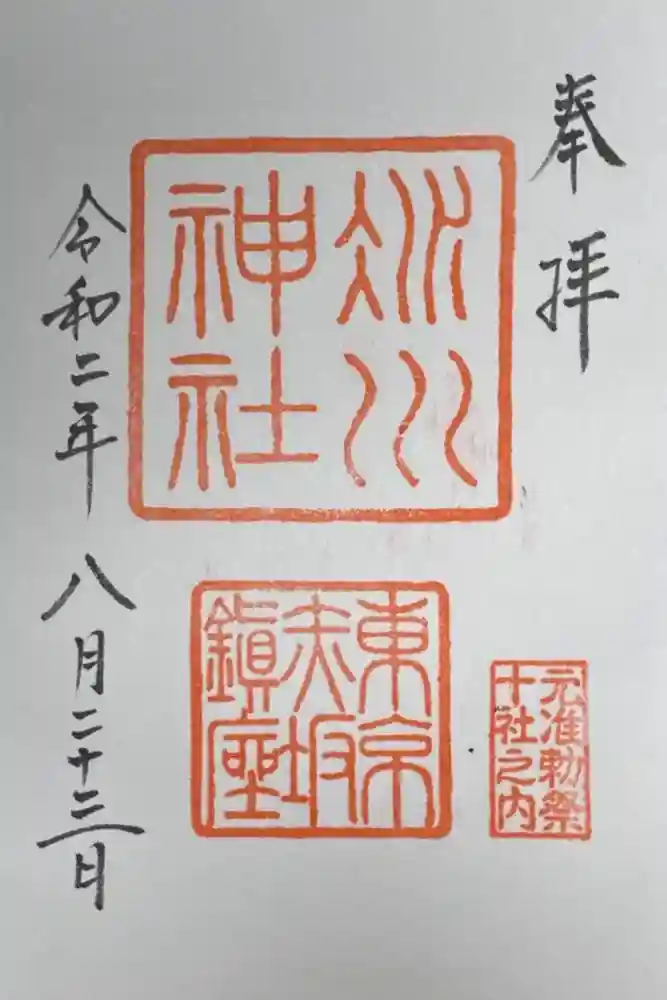 奉拝
氷川
神社
東京
赤坂
鎮座
元准勅祭
十社之内
令和二年八月二十三日